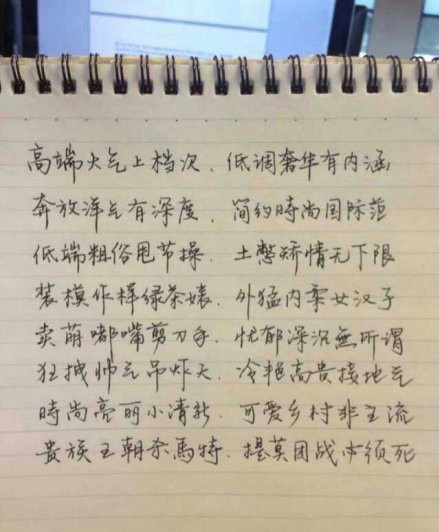 高端大气上档次、低调奢华有内涵
奔放洋气有深度、简约時尚国际范
低端粗俗甩节操、土憋矫情无下限
装模作样绿茶婊、外猛内柔女汉子
卖萌嘟嘴剪刀手、忧郁深沉無所谓
狂拽帅气吊炸天、冷艳高贵接地气
時尚亮丽小清新、可爱乡村非主流
贵族王朝杀馬特、提莫团战必须死